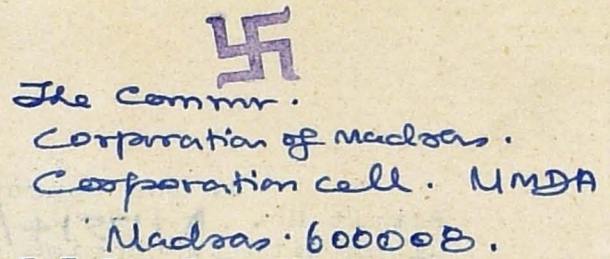 The Commr.
Corporation of Madras.
Corporation cell. MMDA
Madras. 600008.